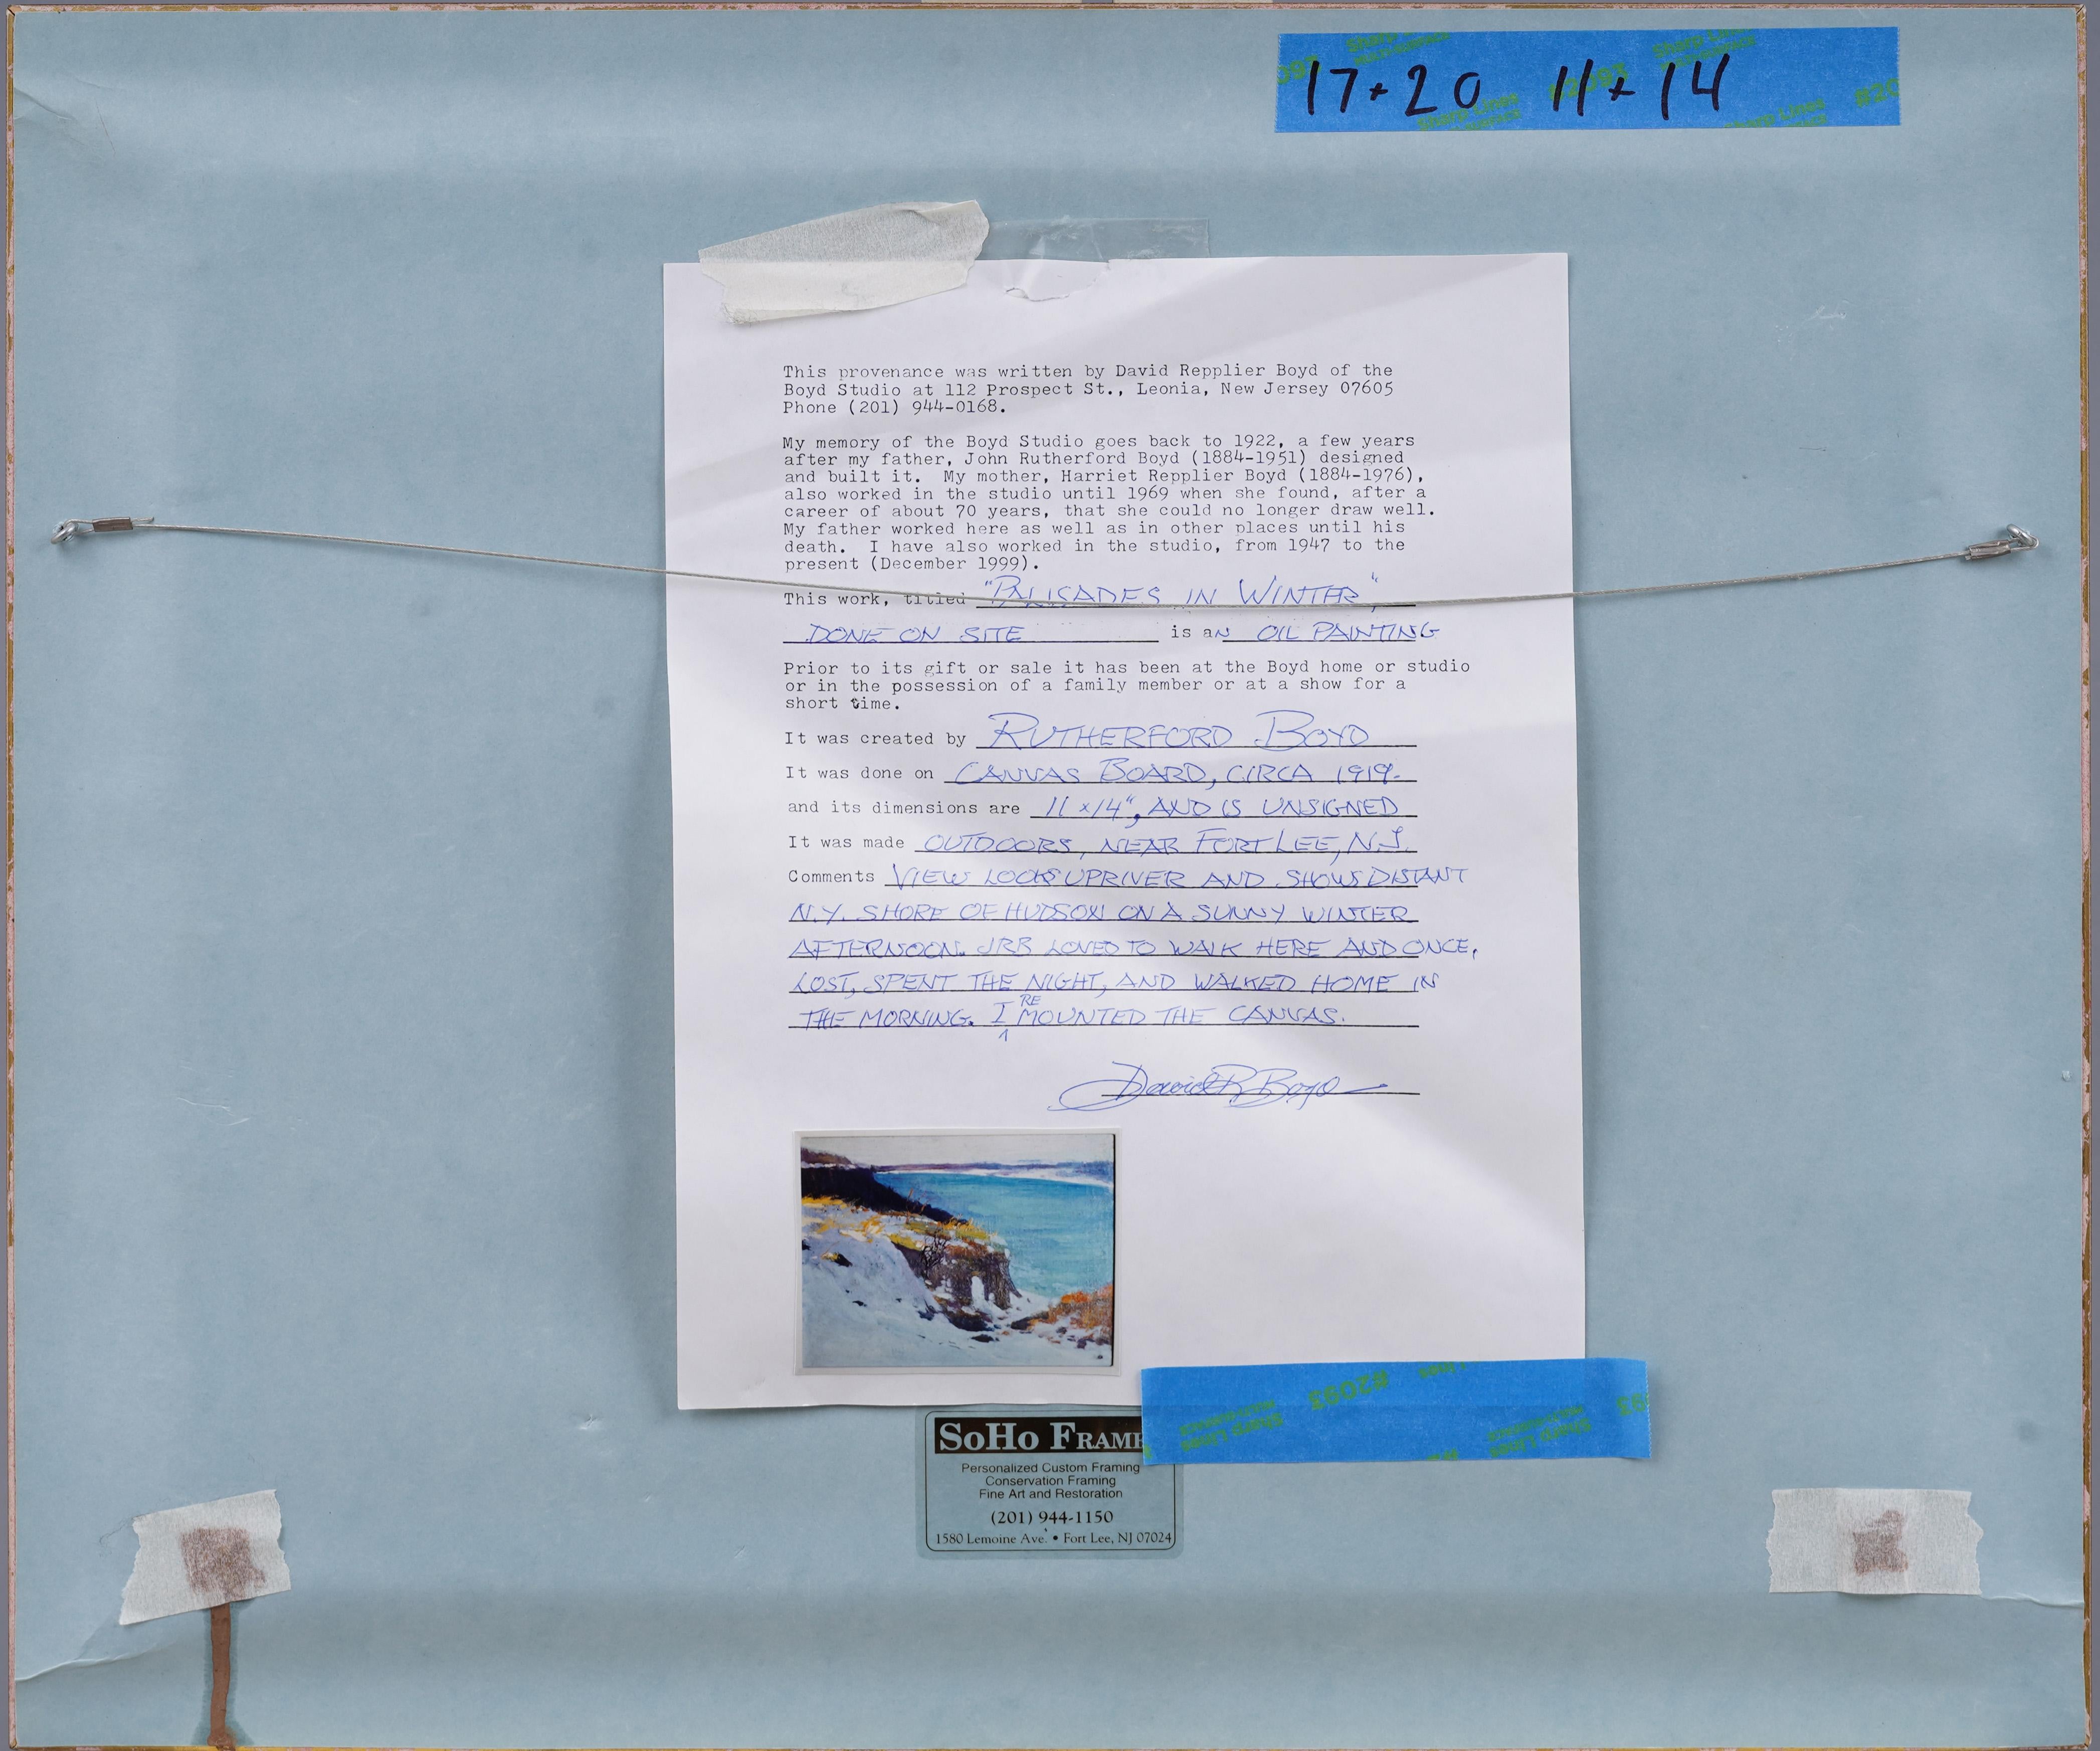 17x20 11x14
This provenance was written by David Repplier Boyd of the
Boyd Studio at 112 Prospect St., Leonia, New Jersey 07605
Phone (201) 944-0168.
My memory of the Boyd Studio goes back to 1922, a few years
after my father, John Rutherford Boyd (1884-1951) designed
and built it. My mother, Harriet Repplier Boyd (1884-1976),
also worked in the studio until 1969 when she found, after a
career of about 70 years, that she could no longer draw well.
My father worked here as well as in other places until his
death. I have also worked in the studio, from 1947 to the
present (December 1999).
This work, titled "PALISADES IN WINTER",
DONE ON SITE is an OIL PAINTING
Prior to its gift or sale it has been at the Boyd home or studio
or in the possession of a family member or at a show for a
short time.
It was created by RUTHERFORD BOYD
It was done on CANVAS BOARD, CIRCA 1919.
and its dimensions are 11x14", AND IS UNSIGNED
It was made OUTDOORS, NEAR FORT LEE, N.J.
Comments VIEW LOOKS UPRIVER AND SHOWS DISTANT
N.Y. SHORE OF HUDSON ON A SUNNY WINTER
AFTERNOON. JRB LOVED TO WALK HERE AND ONCE,
LOST, SPENT THE NIGHT, AND WALKED HOME IN
THE MORNING. I REMOUNTED THE CANVAS.
David R Boyd
#2093
Sharp Lines
SoHo FRAME
Personalized Custom Framing
Conservation Framing
Fine Art and Restoration
(201) 944-1150
1580 Lemoine Ave. • Fort Lee, NJ 07024